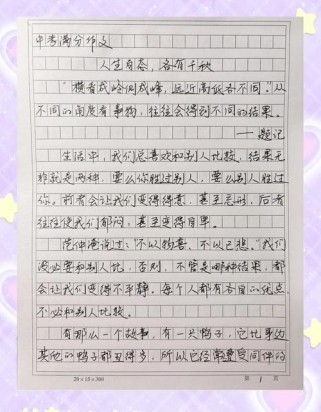 中考满分作文
人生百态，各有千秋
“横看成岭侧成峰，远近高低各不同。”从
不同的角度看事物，往往会得到不同的结果。
——题记
生活中，我们总喜欢和别人比较，结果无
非就是两种，要么你胜过别人，要么别人胜过
你。前者会让我们变得得意，甚至忘形，后者
往往使我们郁闷，甚至变得自卑。
范仲淹说过：“不以物喜，不以己悲。”我们
没必要和别人比，否则，不管是哪种结果，都
会让我们变得不平静。每个人都有各自的优点，
不必和别人比较。
有那么一个故事，有一只鸭子，它比身边
其他的鸭子都丑得多，所以它经常受同伴的
20×15=300
第 1 页